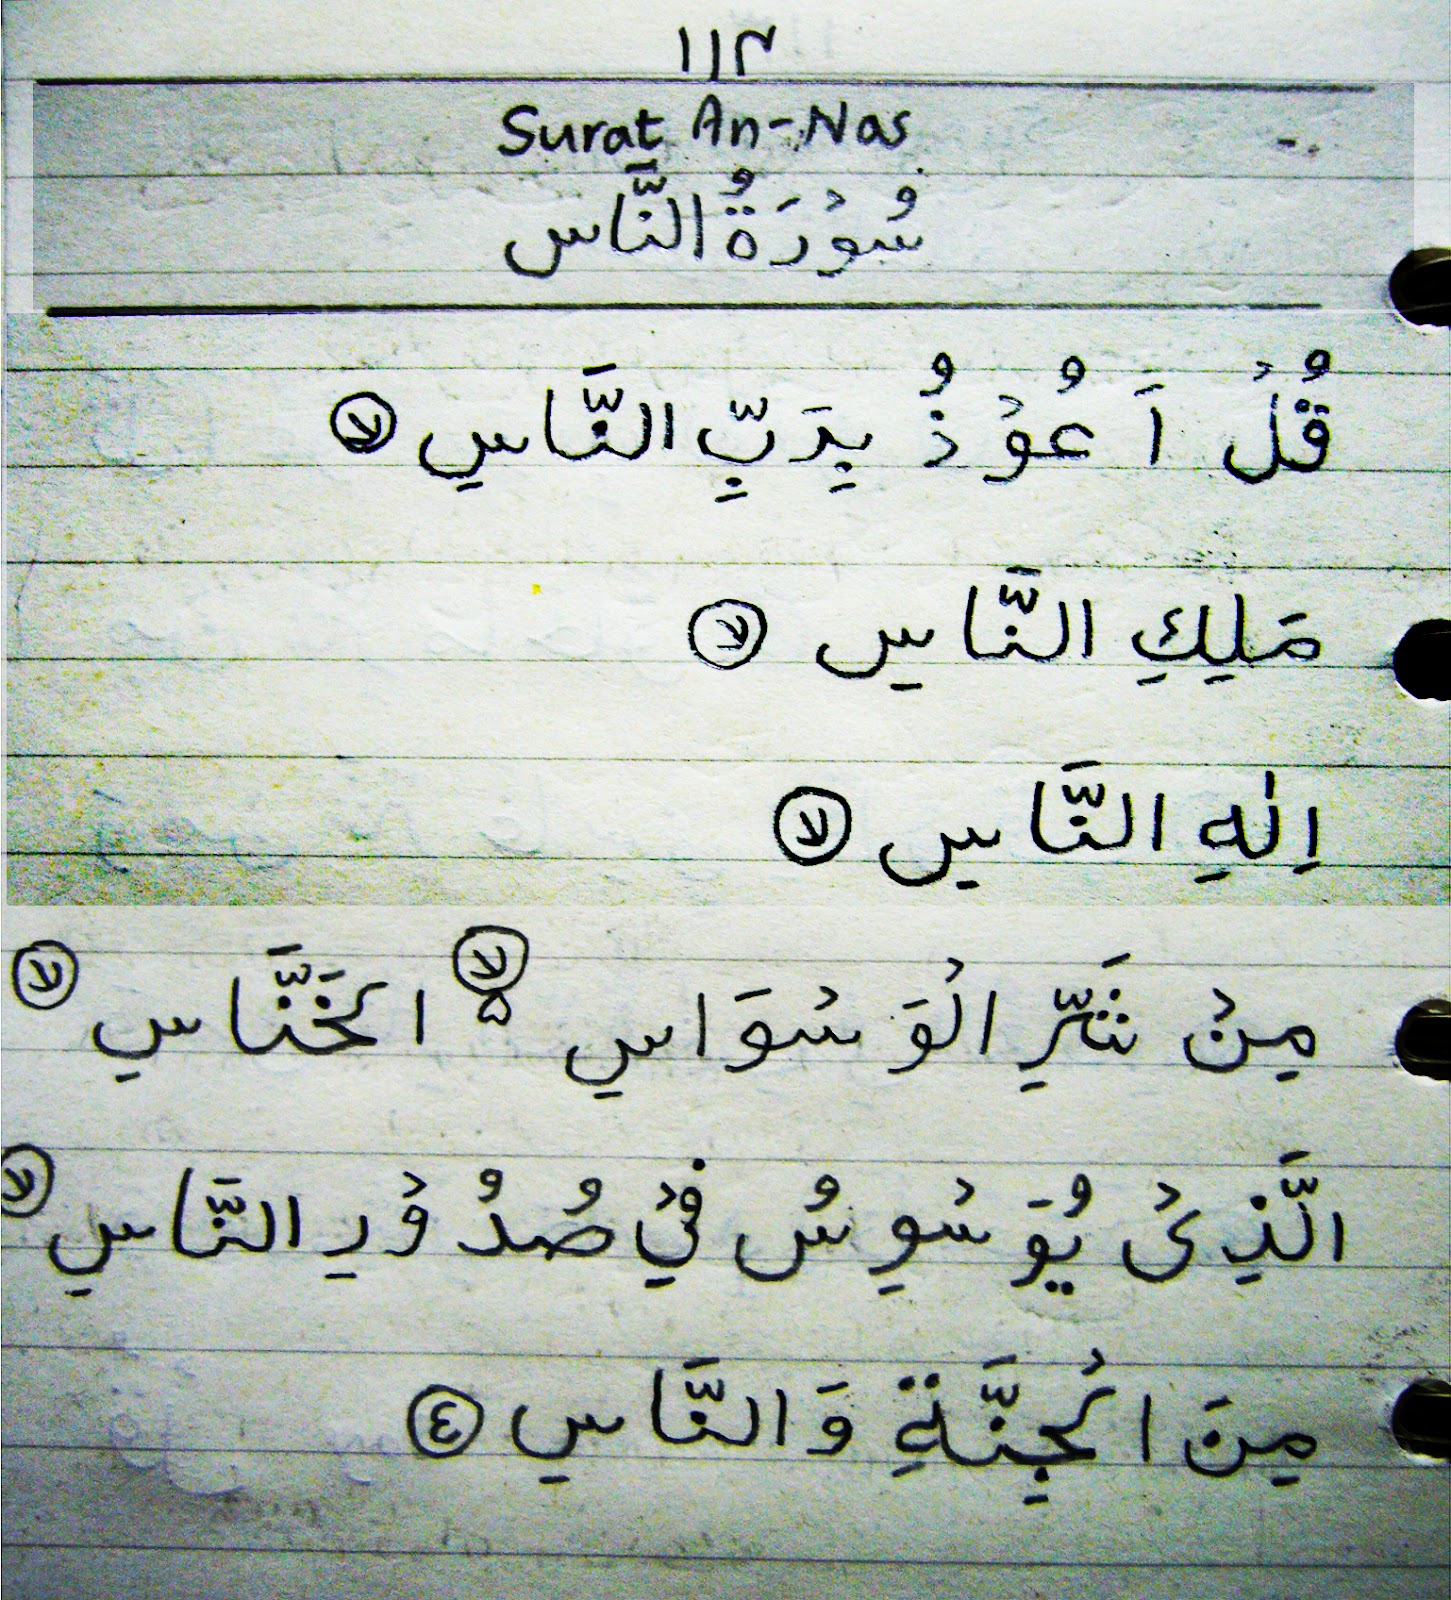 ١١٤
Surat An-Nas
سُوْرَةُ النَّاس
قُلْ اَعُوْذُ بِرَبِّ النَّاسِ ﻻ
مَلِكِ النَّاسِ ﻻ
اِلٰهِ النَّاسِ ﻻ
مِنْ شَرِّ الْوَسْوَاسِ ۵ ﻻ الْخَنَّاسِ ﻻ
الَّذِىْ يُوَسْوِسُ فِيْ صُدُوْرِ النَّاسِ ﻻ
مِنَ الْجِنَّةِ وَالنَّاسِ ٤